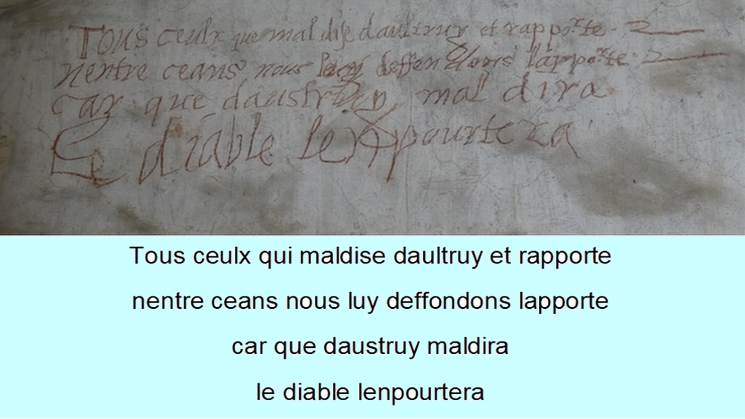 Tous ceulx que mal dise daultruy et rapporte
nentre ceans nous luy deffendons lapporte
car que daustruy mal dira
Le diable lenpourtera
Tous ceulx qui maldise daultruy et rapporte
nentre ceans nous luy deffondons lapporte
car que daustruy maldira
le diable lenpourtera